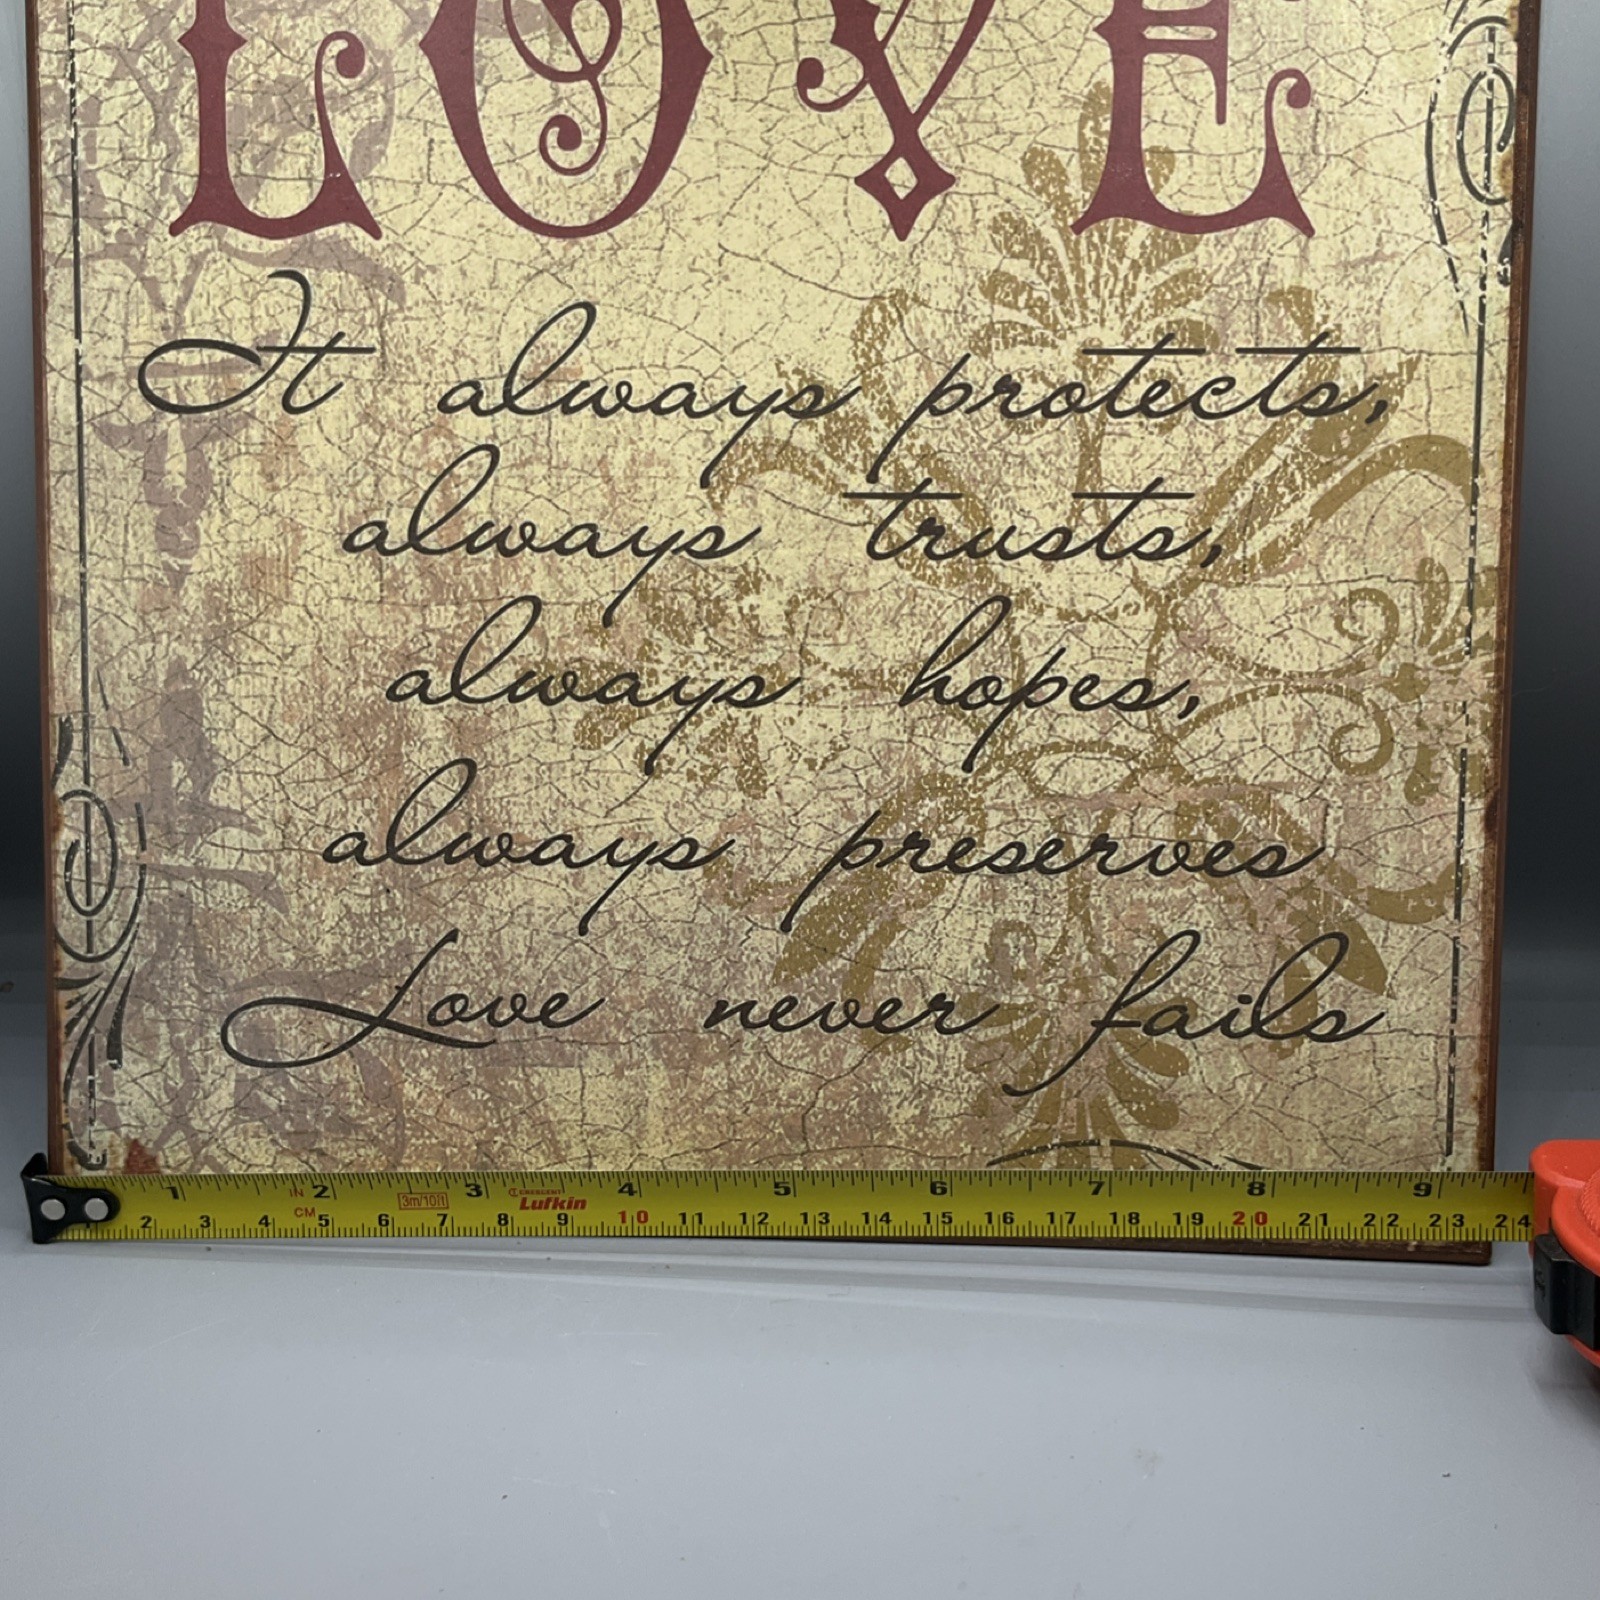 LOVE
It always protects,
always trusts,
always hopes,
always preserves
Love never fails
1 IN 2 3m/10ft 3 CRESCENT Lufkin 4 5 6 7 8 9
CM 2 3 4 5 6 7 8 9 10 11 12 13 14 15 16 17 18 19 20 21 22 23 24